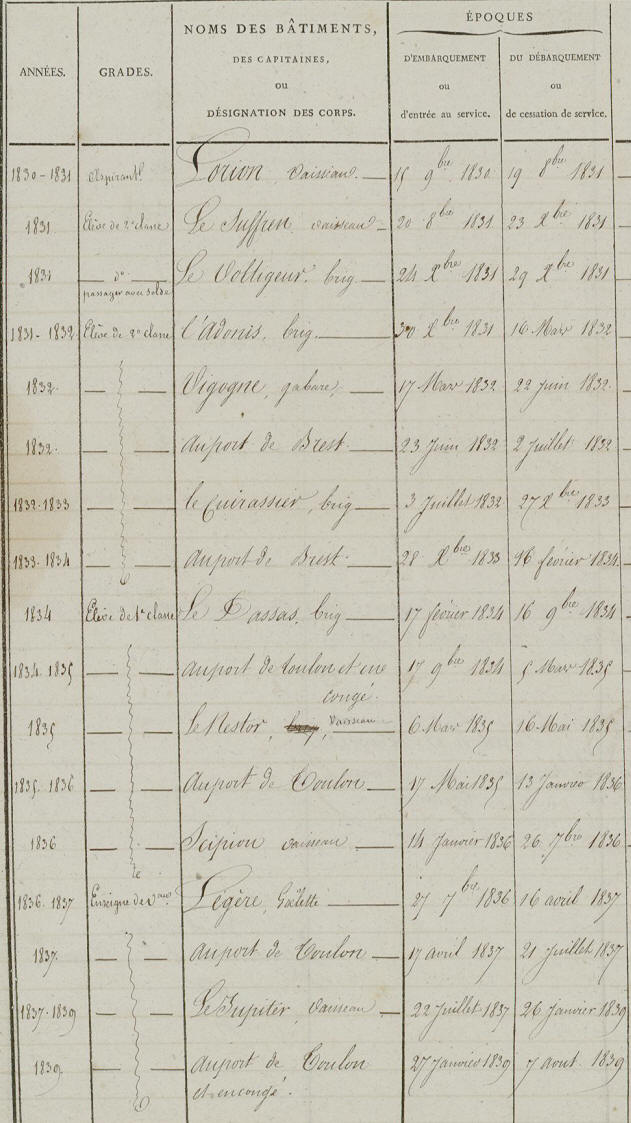 ANNÉES. GRADES. NOMS DES BÂTIMENTS, DES CAPITAINES, ou DÉSIGNATION DES CORPS. ÉPOQUES D'EMBARQUEMENT ou d'entrée au service. DU DÉBARQUEMENT ou de cessation de service.
1830-1831 Aspirant L'orion, vaisseau. 15 9bre 1830 19 8bre 1831
1831 Elève de 2e classe Le Suffren, vaisseau 20 8bre 1831 23 Xbre 1831
1831 do Le Voltigeur, brig 24 Xbre 1831 29 Xbre 1831
passager avec solde
1831-1832 Elève de 2e classe l'Adonis, brig. 30 Xbre 1831 16 Mars 1832
1832. Vigogne, gabare, 17 Mars 1832 22 Juin 1832.
1832. Au port de Brest. 23 Juin 1832 2 Juillet 1832
1832-1833 le Cuirassier, brig 3 Juillet 1832 27 Xbre 1833
1833-1834 Au port de Brest. 28 Xbre 1833 16 février 1834
1834 Elève de 1e classe Le Dassas, brig 17 février 1834 16 9bre 1834
1834.1835 Au port de toulon et en 17 9bre 1834 5 Mars 1835
congé.
1835 Le Nestor, brig, vaisseau 6 Mars 1835 16 Mai 1835
1835.1836 Au port de Toulon 17 Mai 1835 13 Janvier 1836
1836 Scipion vaisseau 14 Janvier 1836 26 7bre 1836
1836.1837 Enseigne de vaau Légère, Goëlette 27 7bre 1836 16 avril 1837
1837. Au port de Toulon 17 avril 1837 21 Juillet 1837
1837-1839 Le Jupiter, vaisseau 22 Juillet 1837 26 Janvier 1839
1839. Au port de Toulon 27 Janvier 1839 7 aout 1839
et en congé.